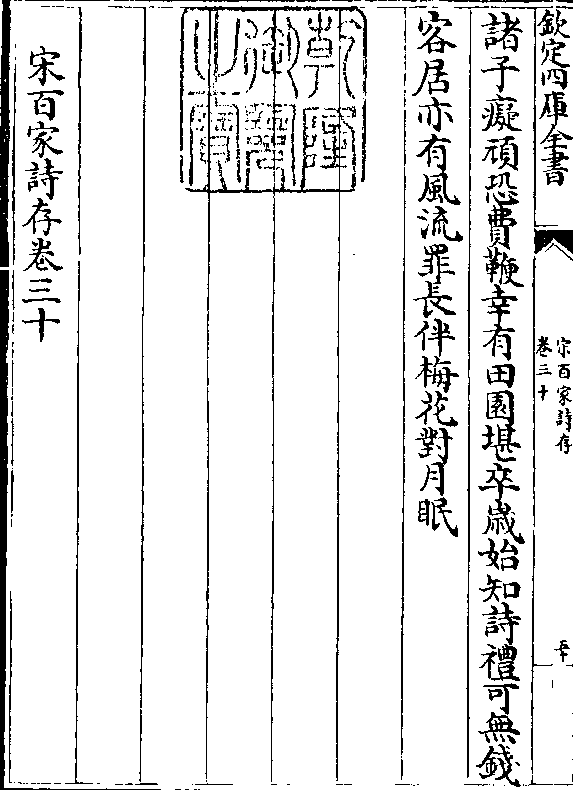 欽定四庫全書
宋百家詩存
卷三十
五十
諸子癡頑恐費鞭幸有田園堪卒歲始知詩禮可無錢
客居亦有風流罪長伴梅花對月眠
乾隆御覽之寶
宋百家詩存卷三十